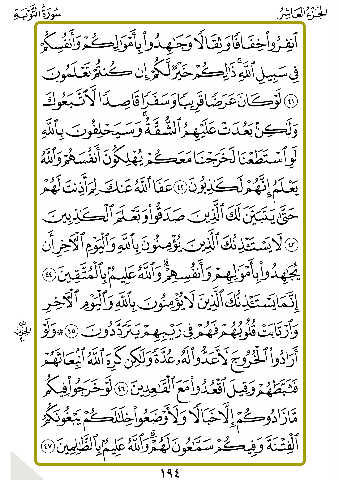 الجزء العاشر سورة التوبة
ٱنفِرُوا۟ خِفَافًا وَثِقَالًا وَجَٰهِدُوا۟ بِأَمْوَٰلِكُمْ وَأَنفُسِكُمْ
فِى سَبِيلِ ٱللَّهِ ذَٰلِكُمْ خَيْرٌ لَّكُمْ إِن كُنتُمْ تَعْلَمُونَ
٤١ لَوْ كَانَ عَرَضًا قَرِيبًا وَسَفَرًا قَاصِدًا لَّٱتَّبَعُوكَ
وَلَٰكِنۢ بَعُدَتْ عَلَيْهِمُ ٱلشُّقَّةُ وَسَيَحْلِفُونَ بِٱللَّهِ
لَوِ ٱسْتَطَعْنَا لَخَرَجْنَا مَعَكُمْ يُهْلِكُونَ أَنفُسَهُمْ وَٱللَّهُ
يَعْلَمُ إِنَّهُمْ لَكَٰذِبُونَ ٤٢ عَفَا ٱللَّهُ عَنكَ لِمَ أَذِنتَ لَهُمْ
حَتَّىٰ يَتَبَيَّنَ لَكَ ٱلَّذِينَ صَدَقُوا۟ وَتَعْلَمَ ٱلْكَٰذِبِينَ
٤٣ لَا يَسْتَـْٔذِنُكَ ٱلَّذِينَ يُؤْمِنُونَ بِٱللَّهِ وَٱلْيَوْمِ ٱلْءَاخِرِ أَن
يُجَٰهِدُوا۟ بِأَمْوَٰلِهِمْ وَأَنفُسِهِمْ وَٱللَّهُ عَلِيمٌۢ بِٱلْمُتَّقِينَ ٤٤
إِنَّمَا يَسْتَـْٔذِنُكَ ٱلَّذِينَ لَا يُؤْمِنُونَ بِٱللَّهِ وَٱلْيَوْمِ ٱلْءَاخِرِ
وَٱرْتَابَتْ قُلُوبُهُمْ فَهُمْ فِى رَيْبِهِمْ يَتَرَدَّدُونَ ٤٥ ۞ وَلَوْ
أَرَادُوا۟ ٱلْخُرُوجَ لَأَعَدُّوا۟ لَهُۥ عُدَّةً وَلَٰكِن كَرِهَ ٱللَّهُ ٱنۢبِعَاثَهُمْ
فَثَبَّطَهُمْ وَقِيلَ ٱقْعُدُوا۟ مَعَ ٱلْقَٰعِدِينَ ٤٦ لَوْ خَرَجُوا۟ فِيكُم
مَّا زَادُوكُمْ إِلَّا خَبَالًا وَلَأَوْضَعُوا۟ خِلَٰلَكُمْ يَبْغُونَكُمُ
ٱلْفِتْنَةَ وَفِيكُمْ سَمَّٰعُونَ لَهُمْ وَٱللَّهُ عَلِيمٌۢ بِٱلظَّٰلِمِينَ ٤٧
١٩٤